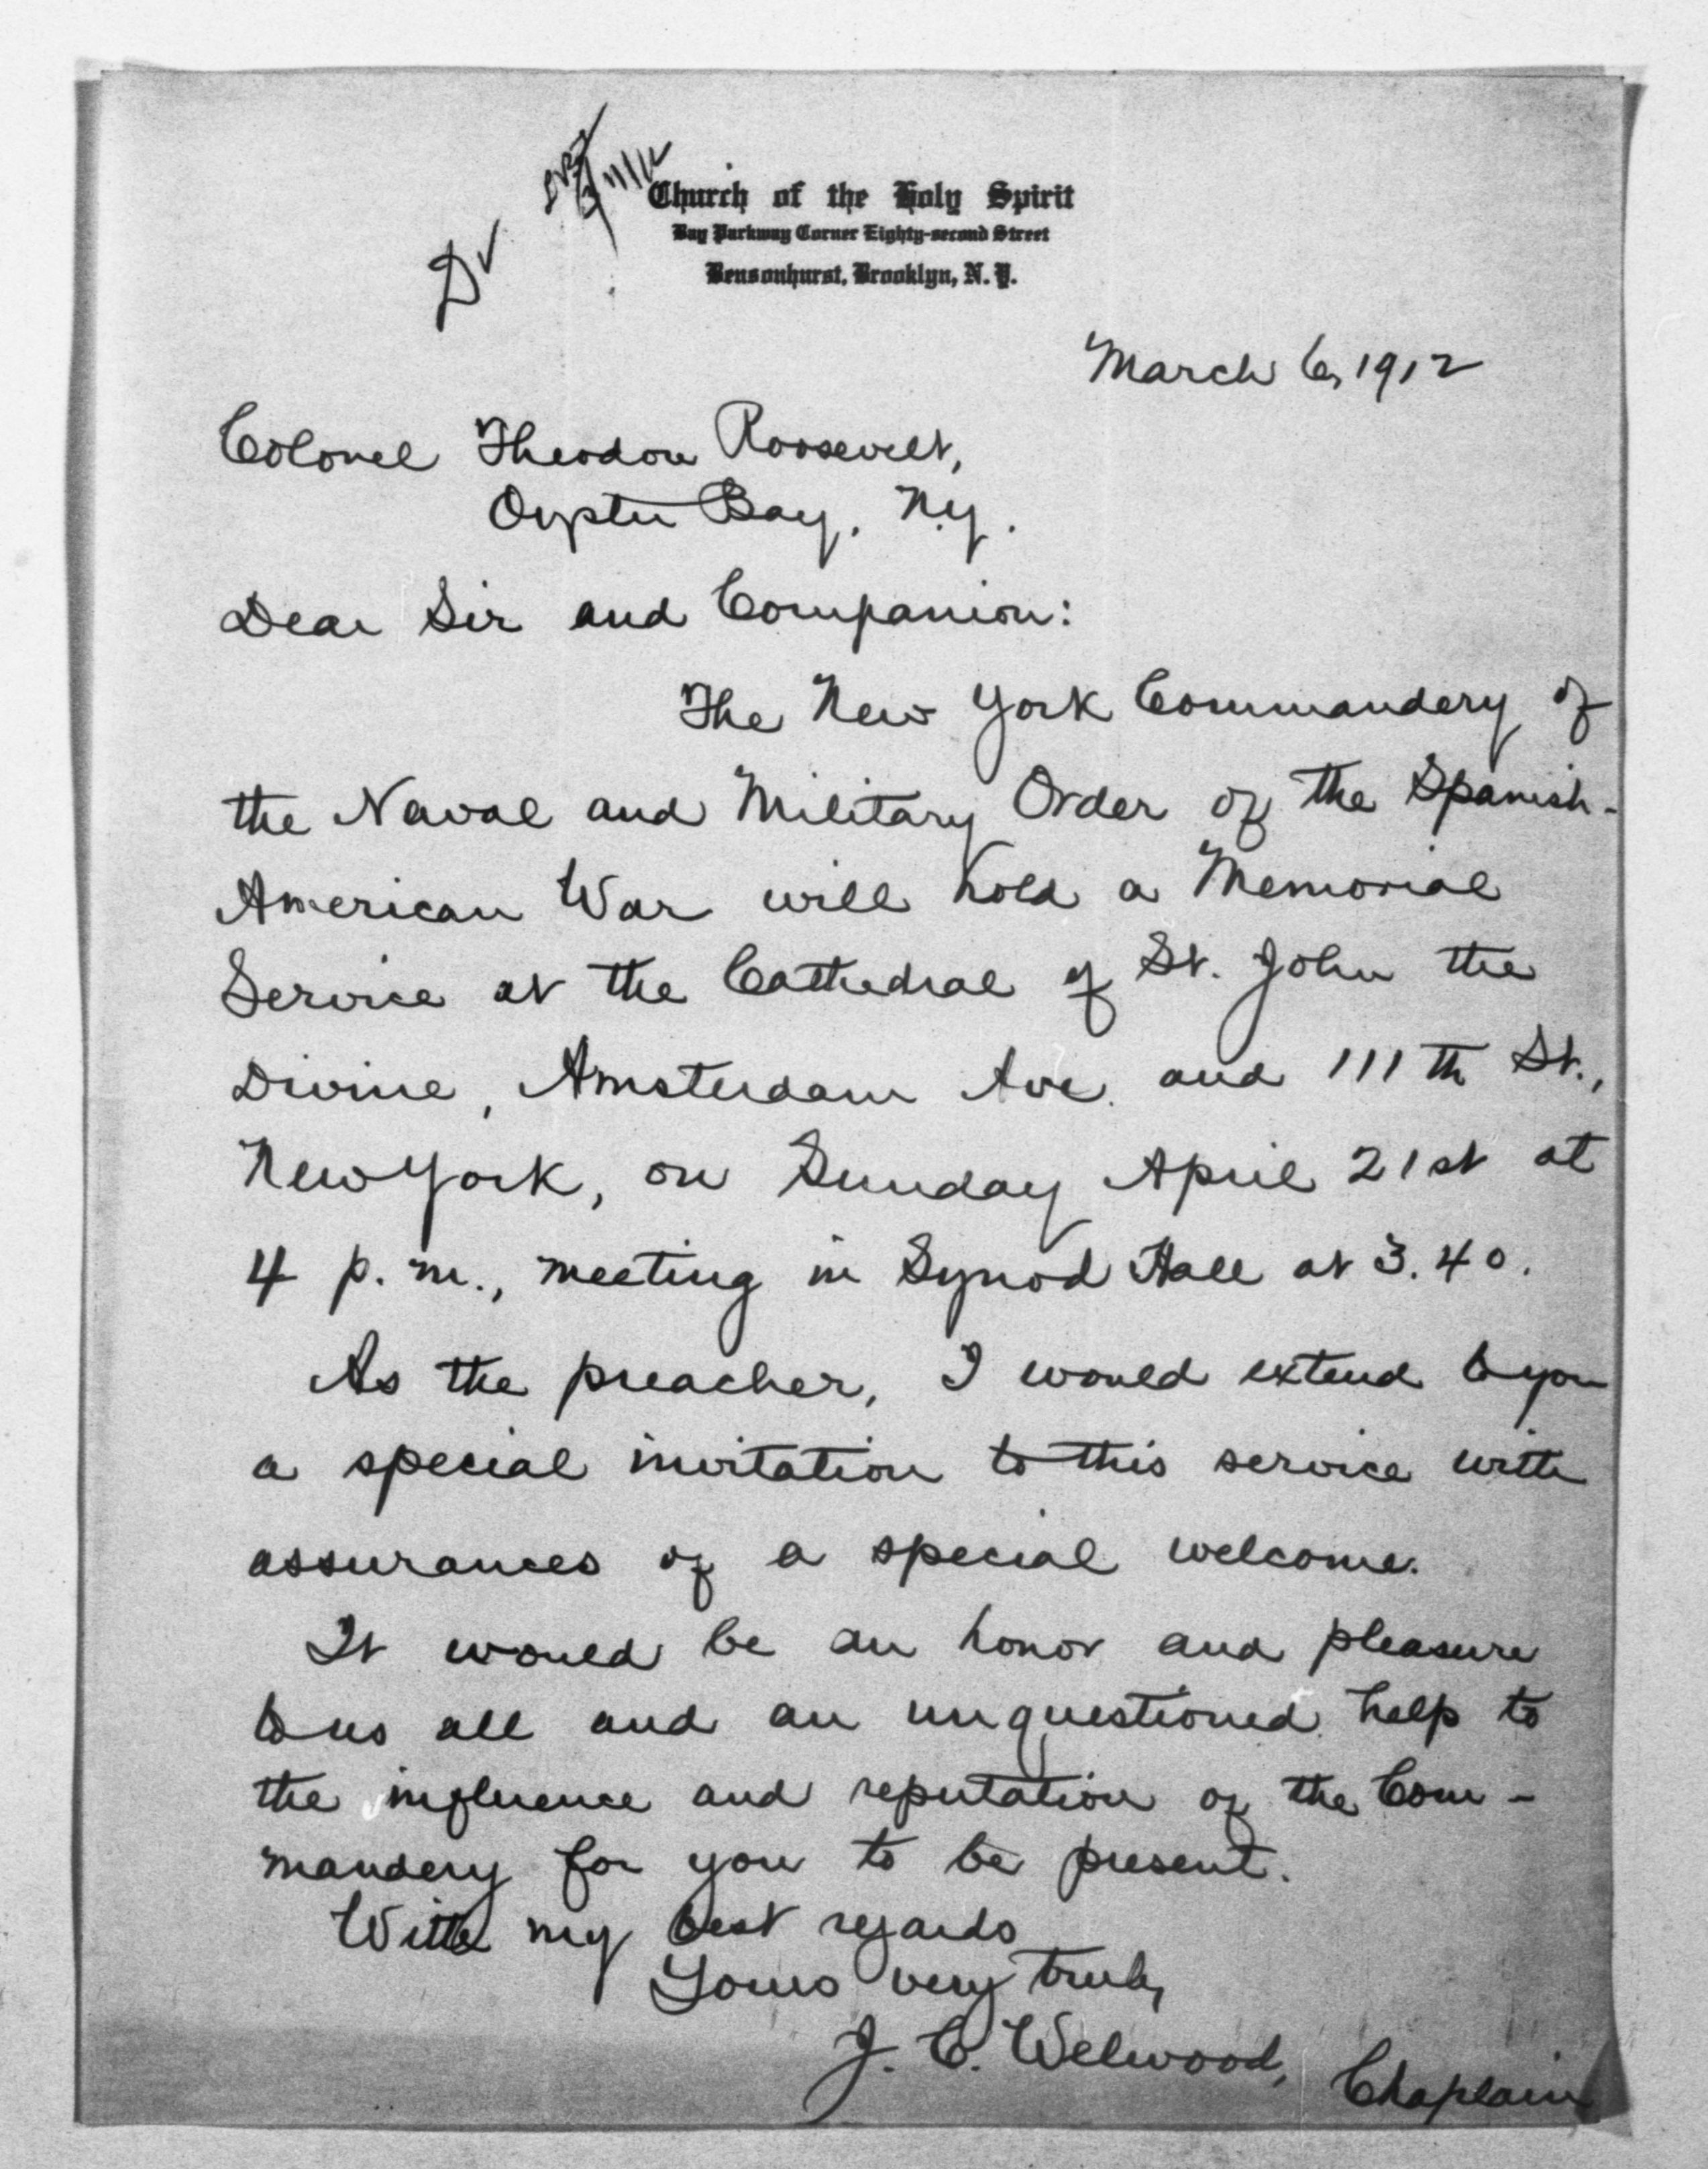 Church of the Holy Spirit
Bay Parkway Corner Eighty-second Street
Bensonhurst, Brooklyn, N. Y.
March 6, 1912
Colonel Theodore Roosevelt,
Oyster Bay, N.Y.
Dear Sir and Companion:
The New York Commandery of
the Naval and Military Order of the Spanish-
American War will hold a Memorial
Service at the Cathedral of St. John the
Divine, Amsterdam Ave. and 111th St.,
New York, on Sunday April 21st at
4 p.m., meeting in Synod Hall at 3.40.
As the preacher, I would extend to you
a special invitation to this service with
assurances of a special welcome.
It would be an honor and pleasure
to us all and an unquestioned help to
the influence and reputation of the Com-
mandery for you to be present.
With my best regards
Yours very truly,
J. C. Welwood, Chaplain